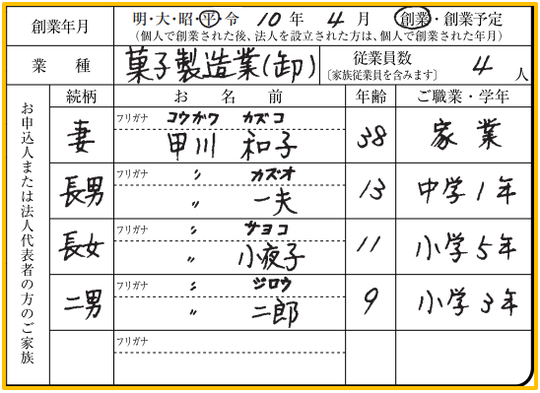 創業年月 明・大・昭・平・令 10年 4月 創業・創業予定
(個人で創業された後、法人を設立された方は、個人で創業された年月)
業種 菓子製造業(卸) 従業員数 4人
〔家族従業員を含みます〕
お申込人または法人代表者の方のご家族
続柄 お名前 年齢 ご職業・学年
フリガナ コウガワ カズコ
妻 甲川 和子 38 家業
フリガナ 〃 カズオ
長男 〃 一夫 13 中学1年
フリガナ 〃 サヨコ
長女 〃 小夜子 11 小学5年
フリガナ 〃 ジロウ
二男 〃 二郎 9 小学3年
フリガナ